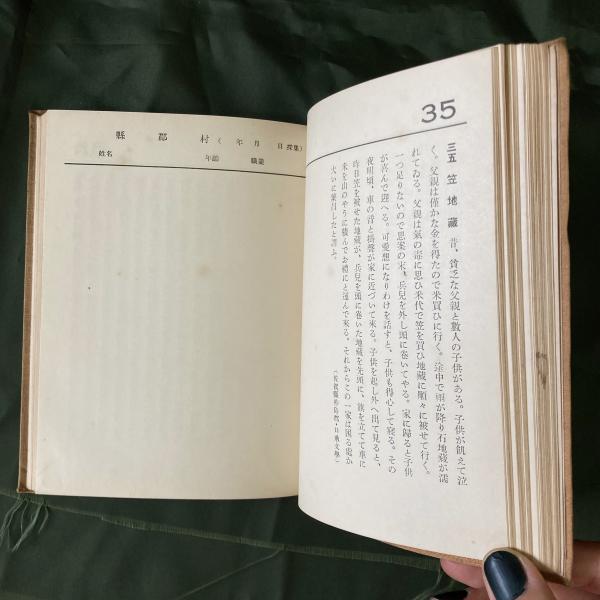 35
三五 笠地藏 昔、貧乏な父親と數人の子供がある。子供が飢えて泣
く。父親は僅かな金を得たので米買ひに行く。途中で雨が降り石地藏が濡
れてゐる。父親は氣の毒に思ひ米代で笠を買ひ地藏に順々に被せて行く。
一つ足りないので思案の末、兵兒を外し頭に卷いてやる。家に歸ると子供
が喜んで迎へる。可愛想になりわけを話すと、子供も得心して寢る。その
夜明頃、車の音と掛聲が家に近づいて來る。子供を起し外へ出て見ると、
昨日笠を被せた地藏が、兵兒を頭に卷いた地藏を先頭に、旗を立てて車に
米を山のやうに積んでお禮にと運んで來る。それからこの一家は困る處か
大いに榮昌したと謂ふ。
日承文學)
縣 郡 村 ( 年 月 日採集)
姓名 年齡 職業